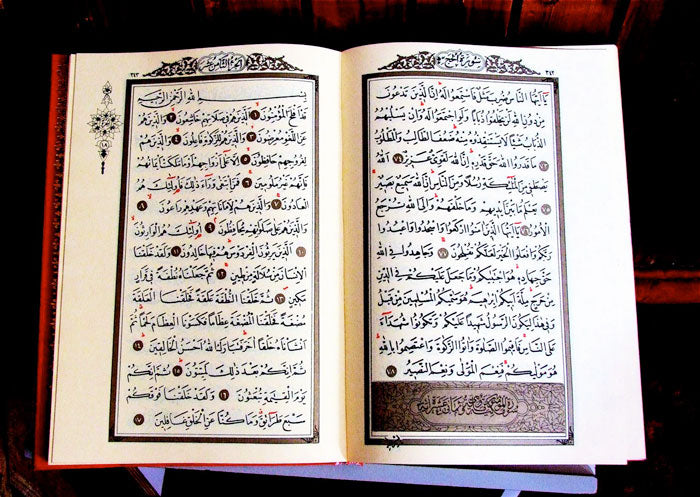 سُورَةُ الْحَجِّ
٣٤٢
يَا أَيُّهَا النَّاسُ ضُرِبَ مَثَلٌ فَاسْتَمِعُوا لَهُ إِنَّ الَّذِينَ تَدْعُونَ
مِنْ دُونِ اللَّهِ لَنْ يَخْلُقُوا ذُبَابًا وَلَوِ اجْتَمَعُوا لَهُ وَإِنْ يَسْلُبْهُمُ
الذُّبَابُ شَيْئًا لَا يَسْتَنْقِذُوهُ مِنْهُ ضَعُفَ الطَّالِبُ وَالْمَطْلُوبُ
٧٣ مَا قَدَرُوا اللَّهَ حَقَّ قَدْرِهِ إِنَّ اللَّهَ لَقَوِيٌّ عَزِيزٌ ٧٤ اللَّهُ
يَصْطَفِي مِنَ الْمَلٰئِكَةِ رُسُلًا وَمِنَ النَّاسِ إِنَّ اللَّهَ سَمِيعٌ بَصِيرٌ
٧٥ يَعْلَمُ مَا بَيْنَ أَيْدِيهِمْ وَمَا خَلْفَهُمْ وَإِلَى اللَّهِ تُرْجَعُ
الْأُمُورُ ٧٦ يَا أَيُّهَا الَّذِينَ آمَنُوا ارْكَعُوا وَاسْجُدُوا وَاعْبُدُوا
رَبَّكُمْ وَافْعَلُوا الْخَيْرَ لَعَلَّكُمْ تُفْلِحُونَ ٧٧ وَجَاهِدُوا فِي اللَّهِ
حَقَّ جِهَادِهِ هُوَ اجْتَبٰيكُمْ وَمَا جَعَلَ عَلَيْكُمْ فِي الدِّينِ
مِنْ حَرَجٍ مِلَّةَ أَبِيكُمْ إِبْرٰهِيمَ هُوَ سَمّٰيكُمُ الْمُسْلِمِينَ مِنْ قَبْلُ
وَفِي هٰذَا لِيَكُونَ الرَّسُولُ شَهِيدًا عَلَيْكُمْ وَتَكُونُوا شُهَدَاءَ
عَلَى النَّاسِ فَأَقِيمُوا الصَّلٰوةَ وَآتُوا الزَّكٰوةَ وَاعْتَصِمُوا بِاللَّهِ
هُوَ مَوْلٰيكُمْ فَنِعْمَ الْمَوْلٰى وَنِعْمَ النَّصِيرُ ٧٨
اَلْجُزْءُ الثَّامِنَ عَشَرَ
٣٤٣
١٨
بِسْمِ اللَّهِ الرَّحْمٰنِ الرَّحِيمِ
قَدْ أَفْلَحَ الْمُؤْمِنُونَ ١ الَّذِينَ هُمْ فِي صَلَاتِهِمْ خَاشِعُونَ ٢ وَالَّذِينَ هُمْ
عَنِ اللَّغْوِ مُعْرِضُونَ ٣ وَالَّذِينَ هُمْ لِلزَّكٰوةِ فَاعِلُونَ ٤ وَالَّذِينَ هُمْ
لِفُرُوجِهِمْ حَافِظُونَ ٥ إِلَّا عَلٰى أَزْوَاجِهِمْ أَوْ مَا مَلَكَتْ أَيْمَانُهُمْ
فَإِنَّهُمْ غَيْرُ مَلُومِينَ ٦ فَمَنِ ابْتَغٰى وَرَاءَ ذٰلِكَ فَأُولٰئِكَ هُمُ
الْعَادُونَ ٧ وَالَّذِينَ هُمْ لِأَمَانَاتِهِمْ وَعَهْدِهِمْ رَاعُونَ ٨
وَالَّذِينَ هُمْ عَلٰى صَلَوَاتِهِمْ يُحَافِظُونَ ٩ أُولٰئِكَ هُمُ الْوَارِثُونَ
١٠ الَّذِينَ يَرِثُونَ الْفِرْدَوْسَ هُمْ فِيهَا خَالِدُونَ ١١ وَلَقَدْ خَلَقْنَا
الْإِنْسَانَ مِنْ سُلَالَةٍ مِنْ طِينٍ ١٢ ثُمَّ جَعَلْنَاهُ نُطْفَةً فِي قَرَارٍ
مَكِينٍ ١٣ ثُمَّ خَلَقْنَا النُّطْفَةَ عَلَقَةً فَخَلَقْنَا الْعَلَقَةَ
مُضْغَةً فَخَلَقْنَا الْمُضْغَةَ عِظَامًا فَكَسَوْنَا الْعِظَامَ لَحْمًا ثُمَّ
أَنْشَأْنَاهُ خَلْقًا آخَرَ فَتَبَارَكَ اللَّهُ أَحْسَنُ الْخَالِقِينَ ١٤
ثُمَّ إِنَّكُمْ بَعْدَ ذٰلِكَ لَمَيِّتُونَ ١٥ ثُمَّ إِنَّكُمْ
يَوْمَ الْقِيٰمَةِ تُبْعَثُونَ ١٦ وَلَقَدْ خَلَقْنَا فَوْقَكُمْ
سَبْعَ طَرَائِقَ وَمَا كُنَّا عَنِ الْخَلْقِ غَافِلِينَ ١٧